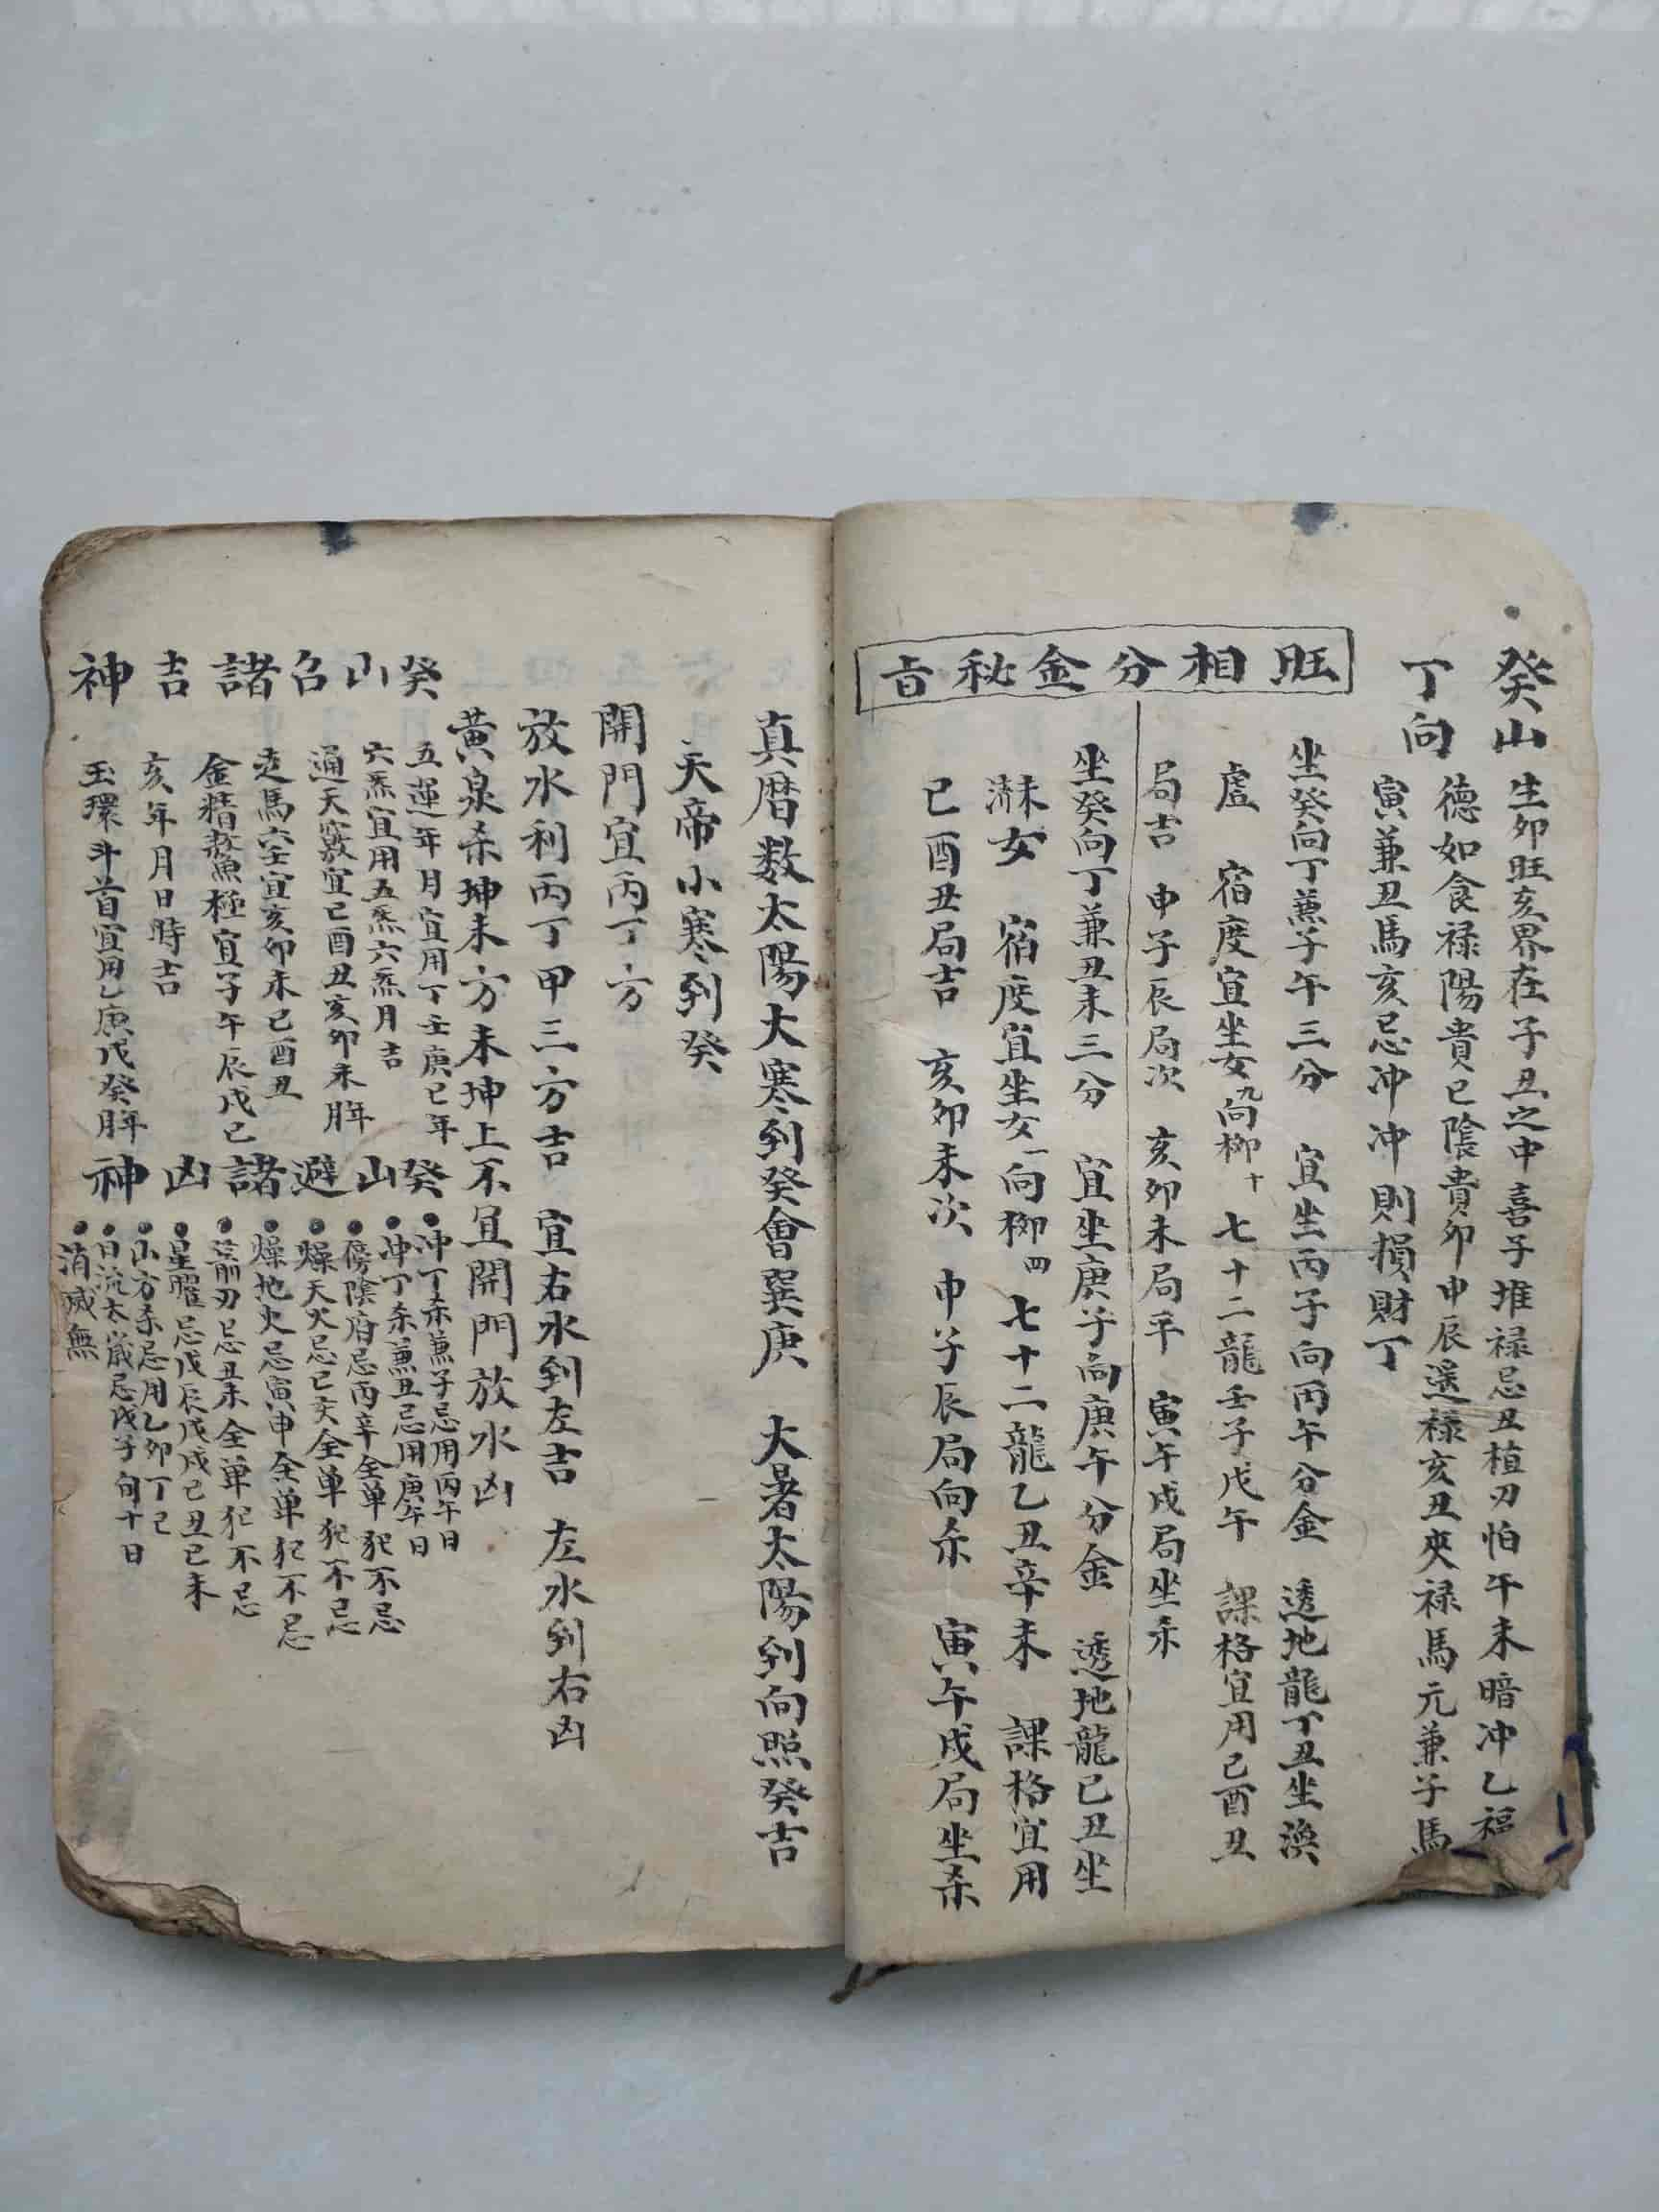 癸山
丁向
生卯旺亥界在子丑之中喜子堆禄忌丑植刃怕午未暗冲乙福
德如食禄陽貴巳陰貴卯申辰遥禄亥丑夾禄馬元兼子馬
寅兼丑馬亥忌冲冲則損財丁
旺相分金秘旨
坐癸向丁兼子午三分 宜坐丙子向丙午分金 透地龍丁丑坐渙
虛 宿度宜坐女九向柳十 七十二龍壬子戊午 課格宜用巳酉丑
局吉 申子辰局次 亥卯未局平 寅午戌局坐杀
坐癸向丁兼丑未三分 宜坐庚子向庚午分金 透地龍己丑坐
女 宿度宜坐女一向柳四 七十二龍乙丑辛未 課格宜用
巳酉丑局吉 亥卯未次 申子辰局向杀 寅午戌局坐杀
真曆数太陽大寒到癸會巽庚 大暑太陽到向照癸吉
天帝小寒到癸
開門宜丙丁方
放水利丙丁甲三方吉 宜右水到左吉 左水到右凶
黄泉杀坤未方未坤上不宜開門放水凶
癸山召諸吉神
五運年月宜用丁壬庚巳年
六炁宜用五炁六炁月吉
通天竅宜巳酉丑亥卯未年月
走馬六壬宜亥卯未巳酉丑
金精鰲極宜子午辰戌巳
亥年月日時吉
玉環斗首宜用乙庚戊癸年月
癸山避諸凶神
冲丁杀兼子忌用丙午日
冲丁杀兼丑忌用庚午日
傍陰府忌丙辛全单犯不忌
燥天火忌巳亥全单犯不忌
燥地火忌寅申全单犯不忌
箭刃忌丑未全单犯不忌
星曜忌戊辰戊戌己丑己未
山方杀忌用乙卯丁巳
日流太歲忌戊子旬十日
消滅無